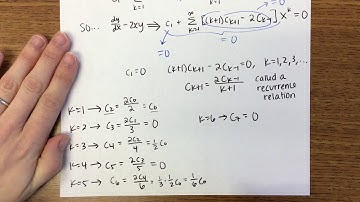 k=1
So... dy/dx - 2xy ⇒ c₁ + Σ k=1 [(k+1)c_{k+1} - 2c_{k-1}] x^k = 0
=0
=0
c₁ = 0 (k+1)c_{k+1} - 2c_{k-1} = 0, k=1,2,3,...
c_{k+1} = 2c_{k-1}/k+1 called a recurrence relation
k=1 → c₂ = 2c₀/2 = c₀
k=2 → c₃ = 2c₁/3 = 0
k=3 → c₄ = 2c₂/4 = 1/2 c₀
k=4 → c₅ = 2c₃/5 = 0
k=5 → c₆ = 2c₄/6 = 1/3 · 1/2 c₀ = 1/6 c₀
k=6 → c₇ = 0